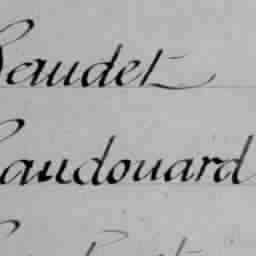 Baudet
Baudouard